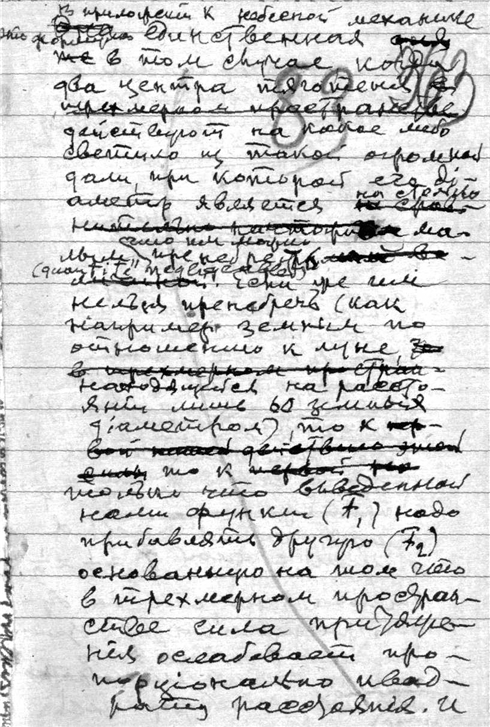 В приложении к небесной механике
эта формула единственная
же в том случае когда
два центра тяготения
трехмерном пространстве
действуют на какое либо
светило из такой огромной
дали, при которой его ді-
аметр является настолько
ма-
лым, что им можно пренебречь
(quantité négligeable). Если же им
нельзя пренебречь (как
например земным по
отношению к луне,
в трехмерном простран-
находящейся на рассто-
янии лишь 60 земных
діаметров), то к пер-
вой нашей действию этой
силы то к первой
только что выведенной
нами функции (F₁) надо
прибавлять другую (F₂)
основанную на том что
в трехмерном простран-
стве сила притяже-
нія ослабевает про-
порціонально квад-
рату расстоянія. И
83